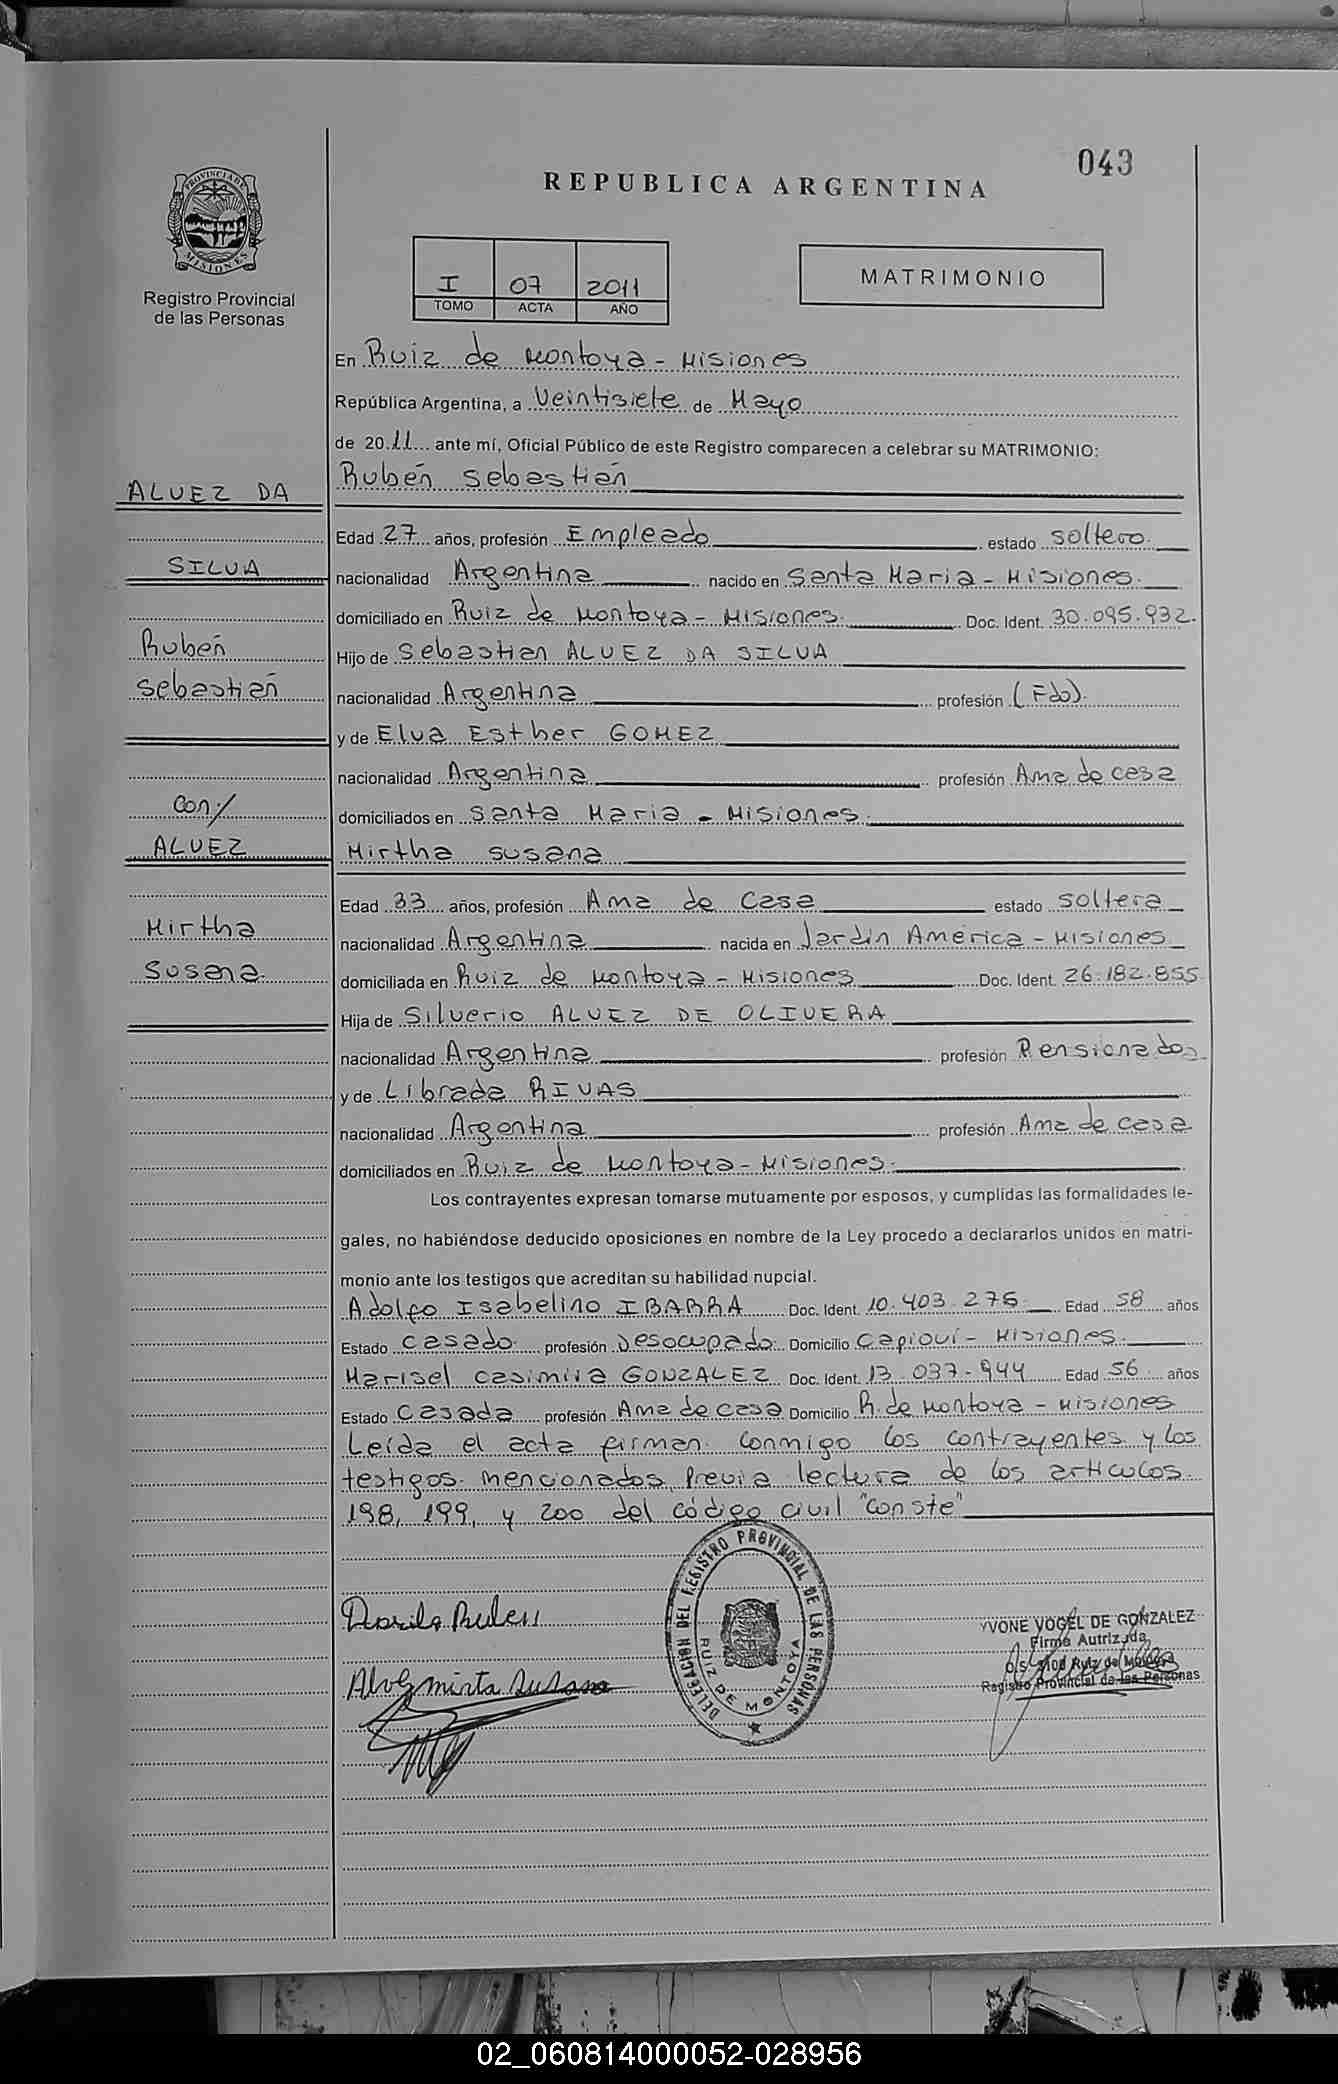 043
REPUBLICA ARGENTINA
PROVINCIA DE MISIONES
Registro Provincial
de las Personas
I 07 2011
TOMO ACTA AÑO
MATRIMONIO
En Ruiz de Montoya - Misiones
República Argentina, a Veintisiete de Mayo
de 2011 ante mí, Oficial Público de este Registro comparecen a celebrar su MATRIMONIO:
ALVEZ DA
SILVA
Rubén
Sebastián
con/
ALVEZ
Mirtha
Susana
Rubén Sebastián
Edad 27 años, profesión Empleado estado soltero
nacionalidad Argentina nacido en Santa Maria - Misiones
domiciliado en Ruiz de Montoya - Misiones. Doc. Ident. 30.095.932.
Hijo de Sebastian ALVEZ DA SILVA
nacionalidad Argentina profesión (Fdo).
y de Elva Esther GOMEZ
nacionalidad Argentina profesión Ama de casa
domiciliados en Santa Maria - Misiones.
Mirtha Susana
Edad 33 años, profesión Ama de Casa estado soltera
nacionalidad Argentina nacida en Jardín América - Misiones
domiciliada en Ruiz de Montoya - Misiones Doc. Ident. 26.182.855
Hija de Silverio ALVEZ DE OLIVERA
nacionalidad Argentina profesión Pensionados
y de Librada RIVAS
nacionalidad Argentina profesión Ama de casa
domiciliados en Ruiz de Montoya - Misiones.
Los contrayentes expresan tomarse mutuamente por esposos, y cumplidas las formalidades le-
gales, no habiéndose deducido oposiciones en nombre de la Ley procedo a declararlos unidos en matri-
monio ante los testigos que acreditan su habilidad nupcial.
Adolfo Isabelino IBARRA Doc. Ident. 10.403.276 Edad 58 años
Estado casado profesión Desocupado Domicilio Capioví - Misiones.
Marisel Casimira GONZALEZ Doc. Ident. 13.037.944 Edad 56 años
Estado Casada profesión Ama de casa Domicilio R. de Montoya - Misiones
Leída el acta firman conmigo los contrayentes y los
testigos mencionados previa lectura de los artículos
198, 199, y 200 del código civil "Conste"
DELEGACION DEL REGISTRO PROVINCIAL DE LAS PERSONAS
RUIZ DE MONTOYA
Ruben
Alvez mirta Susana
YVONE VOGEL DE GONZALEZ
Firma Autrizada
Ruiz de Montoya
Registro Provincial de las Personas
02_060814000052-028956